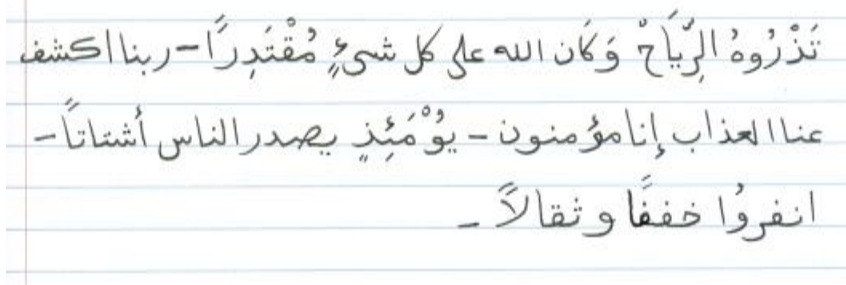 تَذْرُوهُ الرِّيَاحُ وَكَان الله على كل شیءٍ مُقْتَدِرًا - ربنا اكشف
عنا العذاب إنا مؤمنون - يوْمَئِذٍ يصدر الناس أشتاتاً -
انفروُا خففًا وثقالاً -